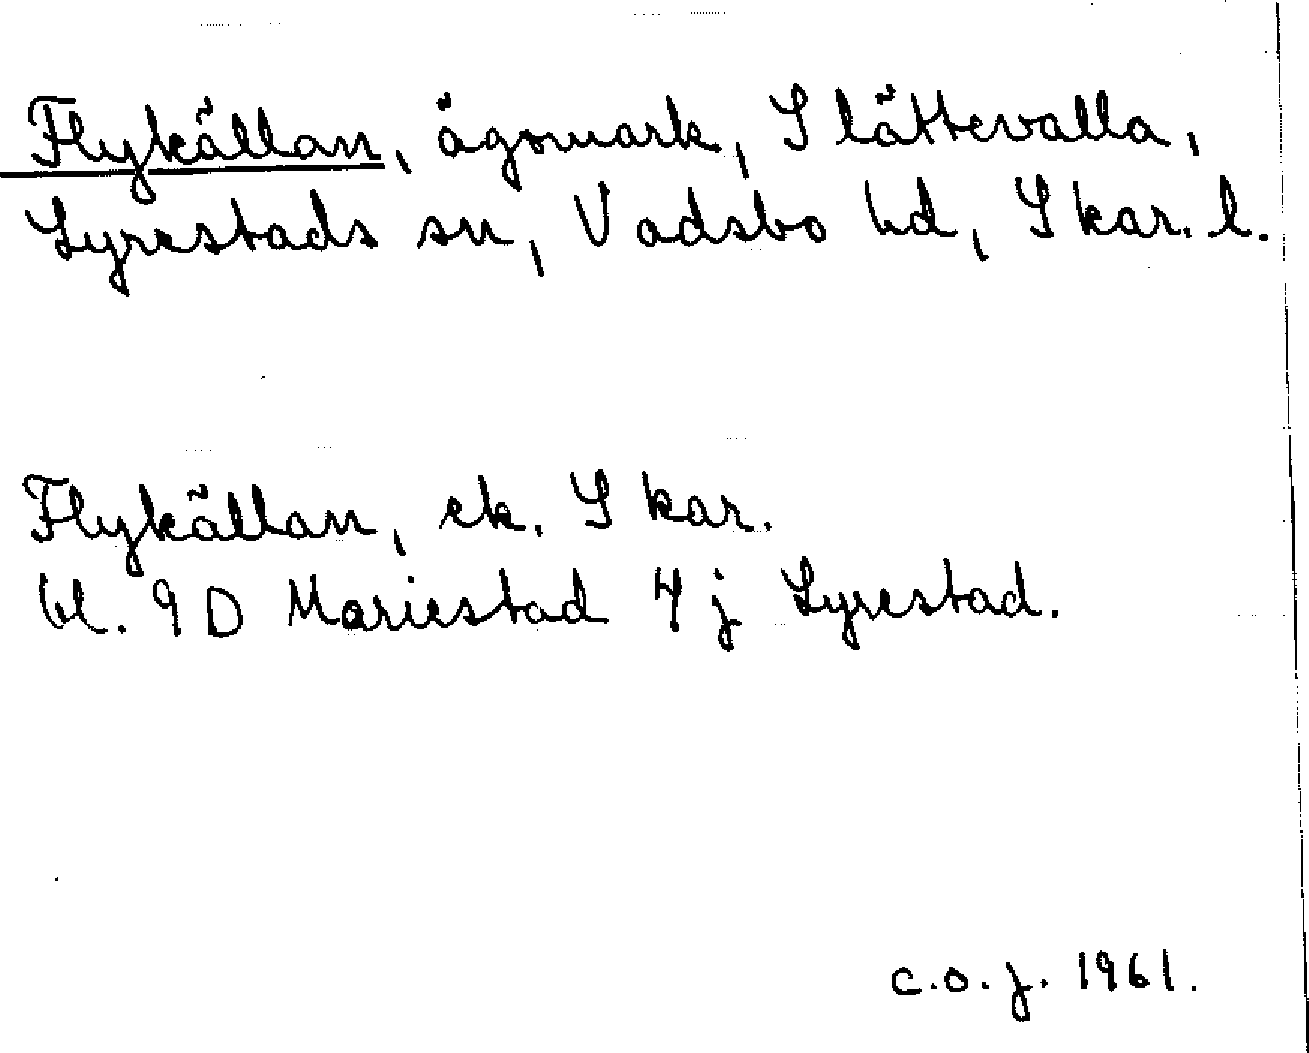 Flykällan, ägomark, Slättevalla,
Lyrestads sn, Vadsbo hd, Skar. l.
Flykällan, ek. Skar.
bl. 9D Mariestad 4j Lyrestad.
C.O.J. 1961.